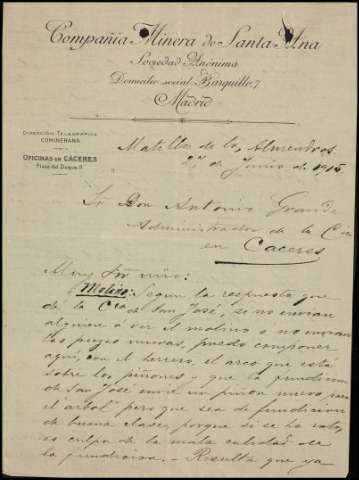 Compañia Minera de Santa Ana
Sociedad Anónima
Domicilio social Barquillo, 7
Madrid
DIRECCIÓN TELEGRÁFICA
COMINERANA
OFICINAS EN CÁCERES
Plaza del Duque
Matilla de los Almendros
27 de Junio de 1915
Sr Don Antonio Grande
Administrador de la Cia
en Caceres
Muy Sr mio:
Molino: Segun la respuesta que
dé la Cia de San José, si no envian
alguien á ver el molino ó no envian
las piezas nuevas, puedo componer
aqui, con el herrero, el arco que está
sobre los piñones y que la fundicion
de San José envie un piñon nuevo para
el arbol pero que sea de fundicion
de buena clase, porque si se ha roto,
es culpa de la mala calidad de
la fundicion. - Resulta que ya